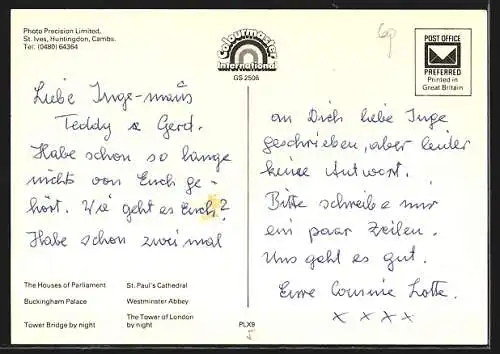 Photo Precision Limited,
St. Ives, Huntingdon, Cambs.
Tel: (0480) 64364
Colourmaster
International
GS 2506
POST OFFICE
PREFERRED
Printed in
Great Britain
Liebe Inge-mäus
Teddy & Gerd.
Habe schon so lange
nichts von Euch ge-
hört. Wie geht es Euch?
Habe schon zwei mal
an Dich liebe Inge
geschrieben, aber leider
keine Antwort.
Bitte schreibe mir
ein paar Zeilen.
Uns geht es gut.
Eure Cousine Lotte.
x x x x
The Houses of Parliament
St. Paul's Cathedral
Buckingham Palace
Westminster Abbey
Tower Bridge by night
The Tower of London
by night
PLX9